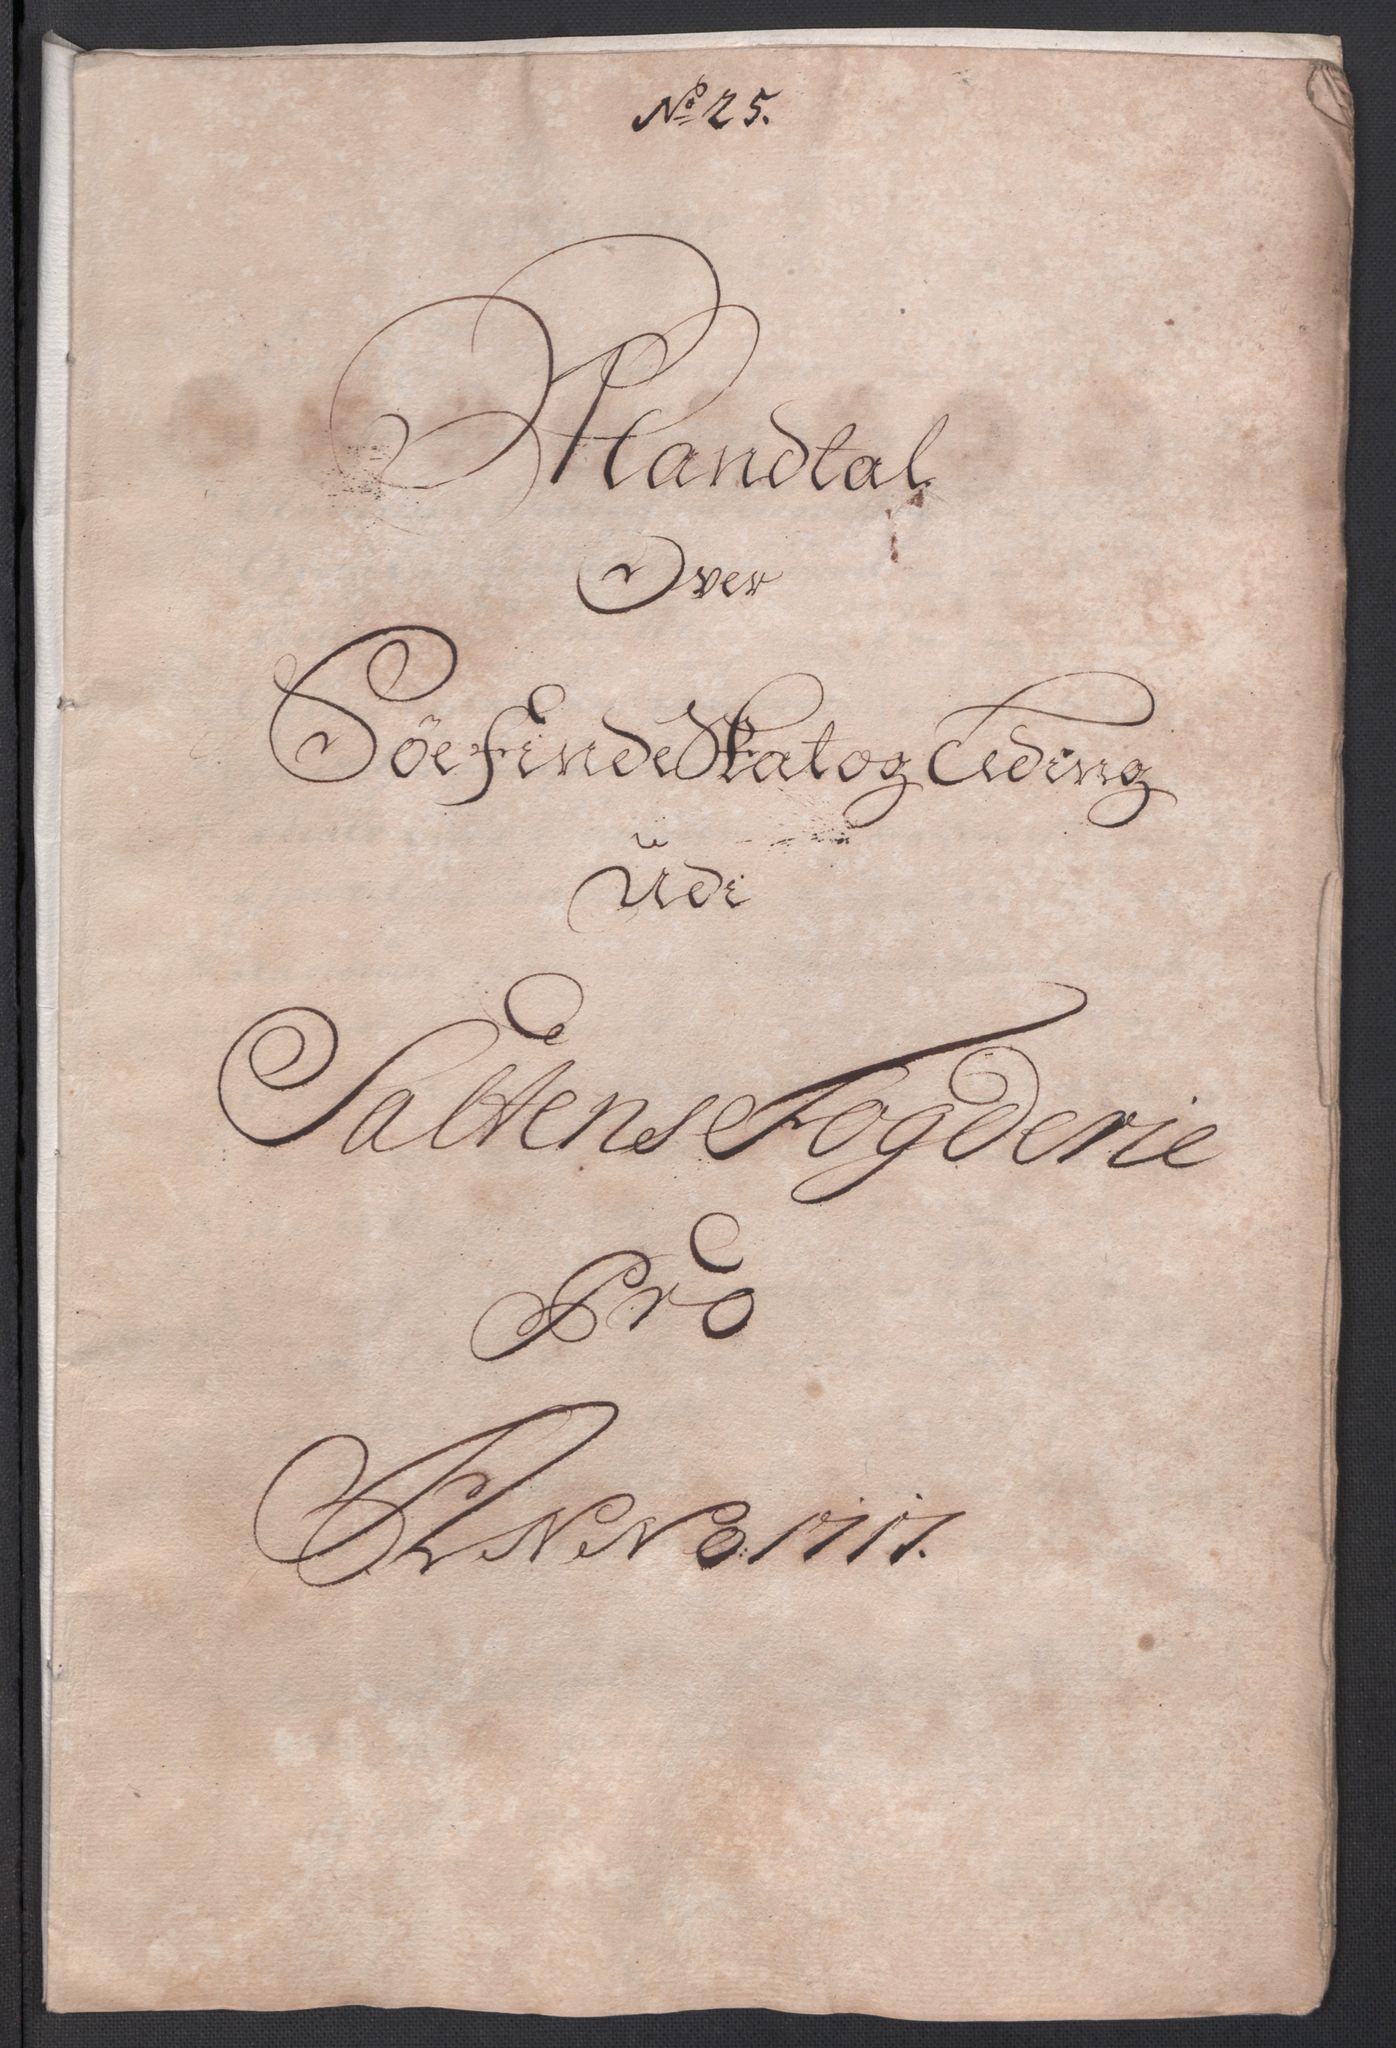 No 25.
Mandtal
Over
Söefinde Skat og Leding
Udi
Saltens Fogderie
Pro
Anno: 1717.